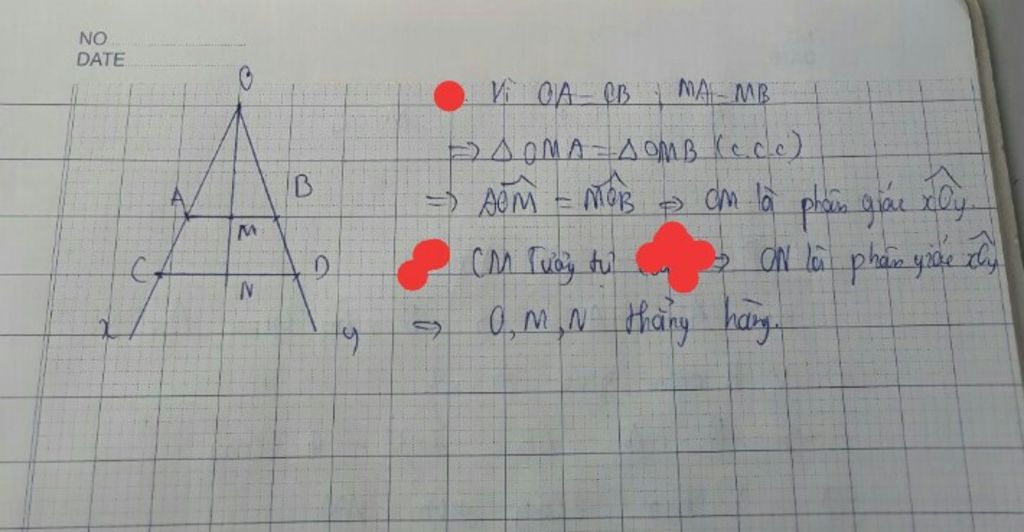 NO
DATE
O
A
B
M
C
D
N
x
y
Vì OA = OB ; MA = MB
=> △OMA = △OMB (c.c.c)
=> AÔM = MÔB => OM là phân giác xÔy.
CM Tương tự => ON là phân giác xÔy
=> O, M, N thẳng hàng.